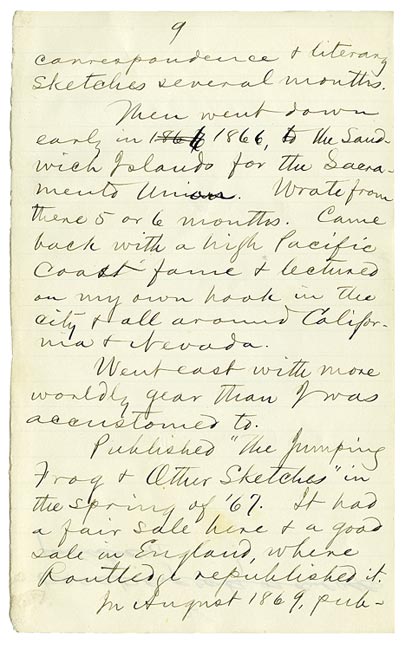 9
correspondence & literary
sketches several months.
Then went down
early in 1866 1866, to the Sand-
wich Islands for the Sacra-
mento Union. Wrote from
there 5 or 6 months. Came
back with a high Pacific
Coast fame & lectured
on my own hook in the
city & all around Califor-
nia & Nevada.
Went east with more
worldly gear than I was
accustomed to.
Published "The Jumping
Frog & Other Sketches" in
the spring of '67. It had
a fair sale here & a good
sale in England, where
Routledge republished it.
In August 1869, pub-